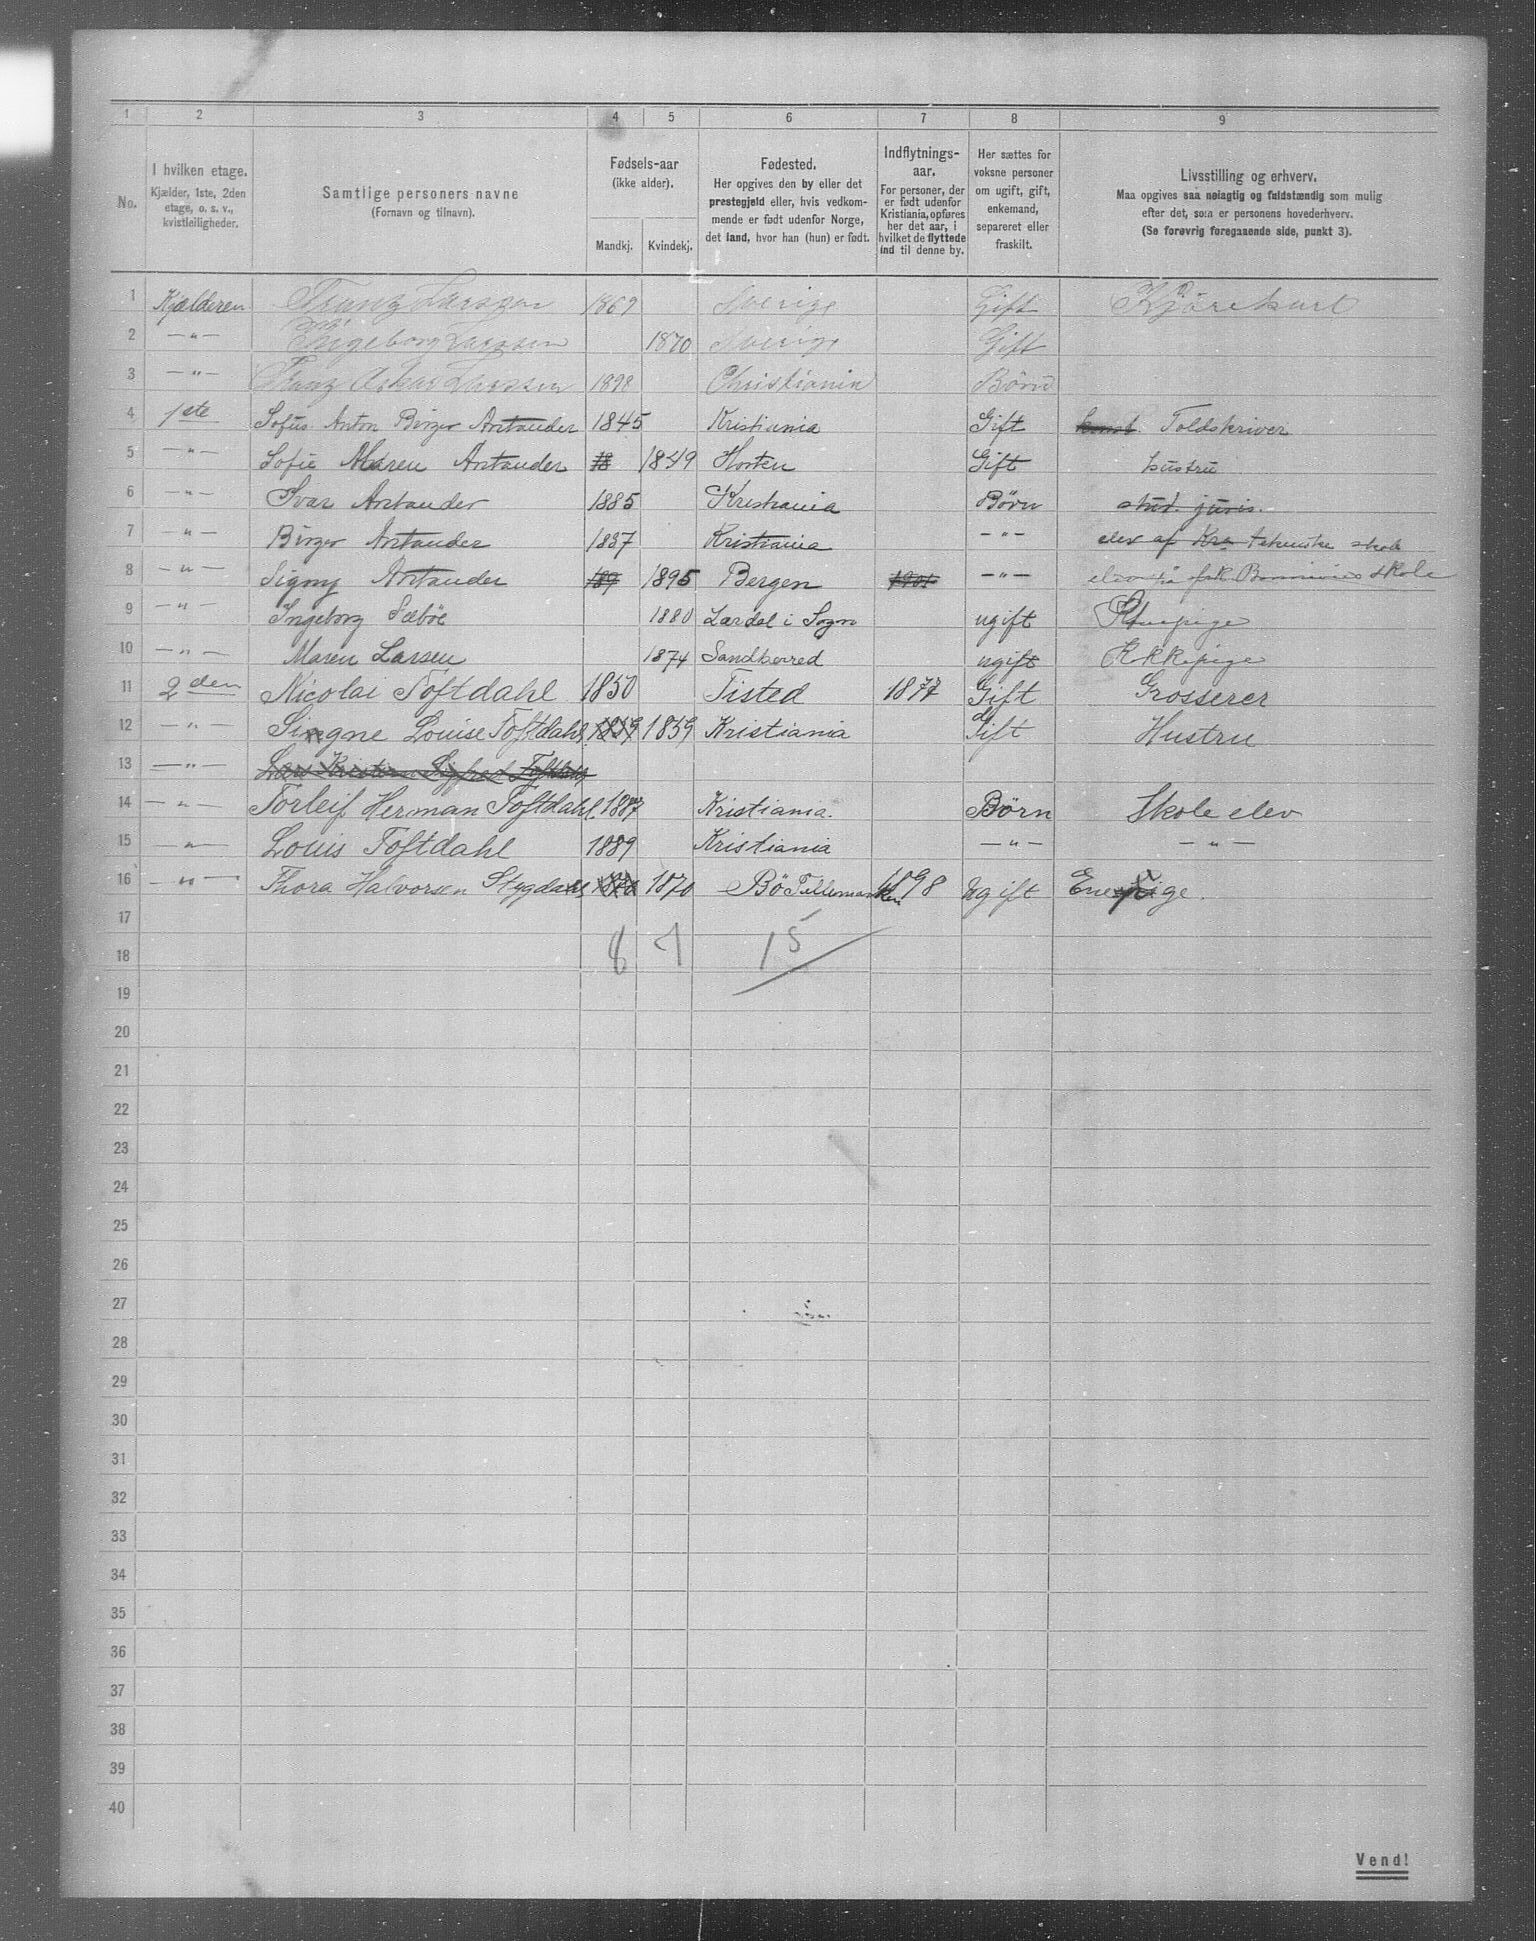 1 2 3 4 5 6 7 8 9
No.
I hvilken etage.
Kjælder, 1ste, 2den
etage, o. s. v.,
kvistleiligheder.
Samtlige personers navne
(Fornavn og tilnavn).
Fødsels-aar
(ikke alder).
Mandkj. Kvindekj.
Fødested.
Her opgives den by eller det
prestegjeld eller, hvis vedkom-
mende er født udenfor Norge,
det land, hvor han (hun) er født.
Indflytnings-
aar.
For personer, der
er født udenfor
Kristiania, opføres
her det aar, i
hvilket de flyttede
ind til denne by.
Her sættes for
voksne personer
om ugift, gift,
enkemand,
separeret eller
fraskilt.
Livsstilling og erhverv.
Maa opgives saa nøiagtig og fuldstændig som mulig
efter det, som er personens hovederhverv.
(Se forøvrig foregaaende side, punkt 3).
1 Kjælderen Franz Larssen 1869 Sverige Gift Kjörekarl
2 —"— Ingeborg Larssen 1870 Sverige Gift
3 —"— Franz Oskar Larssen 1898 Christiania Börn
4 1ste Sofus Anton Birger Arntander 1845 Kristiania Gift Toldskriver
5 —"— Sofie Maren Arntander 18 1849 Horten Gift hustru
6 —"— Ivar Arntander 1885 Kristiania Børn stud. juris.
7 —"— Birger Arntander 1887 Kristiania —"— elev af Kra tekniske skole
8 —"— Signy Arntander 189 1895 Bergen 1901 —"— elev skole
9 —"— Ingeborg Sæbøe 1880 Lærdal i Sogn ugift Stuepige
10 —"— Maren Larsen 1874 Sandherred ugift Kokkepige
11 2den Nicolai Toftdahl 1850 Tisted 1877 Gift Grosserer
12 —"— Singne Louise Toftdahl 1859 1859 Kristiania Gift Hustru
13 —"— Kristian Sigfred Toftdahl
14 —"— Torleif Herman Toftdahl. 1887 Kristiania. Børn Skole elev
15 —"— Louis Toftdahl 1889 Kristiania —"— —"—
16 —"— Thora Halvorsen Stygdahl 1870 1870 Bø Tillemarken 1898 Ugift Enepige.
17
8 7 15
18
19
20
21
22
23
24
25
26
27
28
29
30
31
32
33
34
35
36
37
38
39
40
Vend!